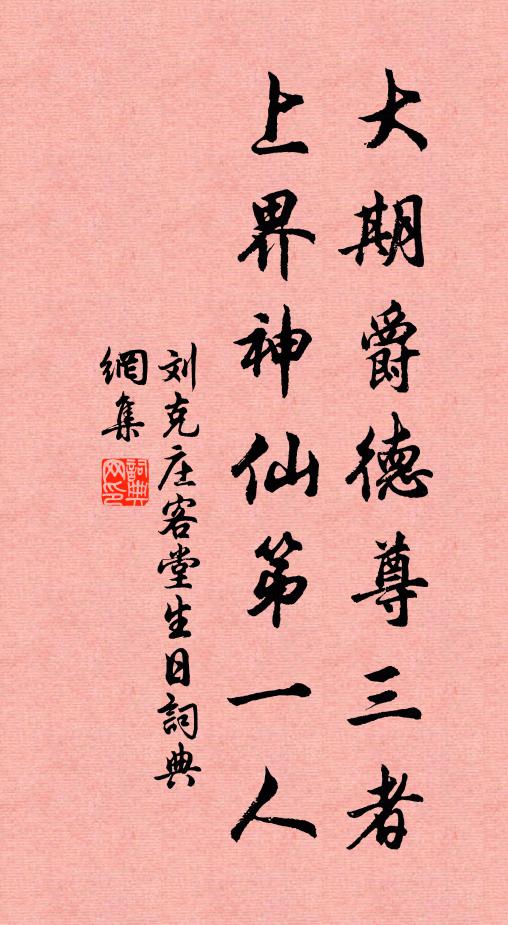 大期爵德尊三者
上界神仙第一人
刘克庄客堂生日詞典
網集
詞典网印